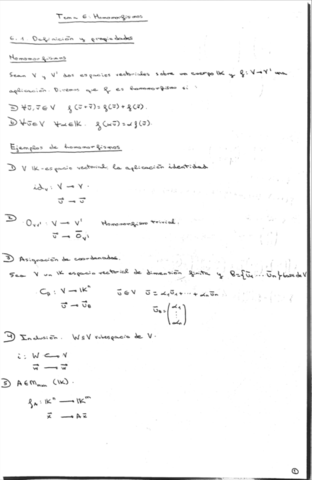 Tema 6: Homomorfismos
6.1 Definición y propiedades
Homomorfismos
Sean V y V' dos espacios vectoriales sobre un cuerpo IK y f: V → V' una
aplicación. Diremos que f es homomorfismo si:
1) ∀ū, v̄ ∈ V f(ū+v̄) = f(ū) + f(v̄).
2) ∀ū ∈ V ∀α ∈ IK. f(αū) = α f(ū).
Ejemplos de homomorfismos
1) V IK-espacio vectorial la aplicación identidad
id_v: V → V.
ū → ū
2) O_vv' : V → V' Homomorfismo trivial.
ū → Ō_v'
3) Asignación de coordenadas.
Sea V un IK espacio vectorial de dimensión finita y B={ū₁ ... ūₙ} base de V
C_B: V → IKⁿ ū ∈ V ū = α₁ū₁ + ... + αₙūₙ
ū → ū_B ū_B = (α₁ ⋮ αₙ)
4) Inclusión. W ≤ V subespacio de V.
i: W ↪ V
ū → ū
5) A ∈ Mmxn (IK).
f_A: IKⁿ → IKᵐ
x̄ → Ax̄
1